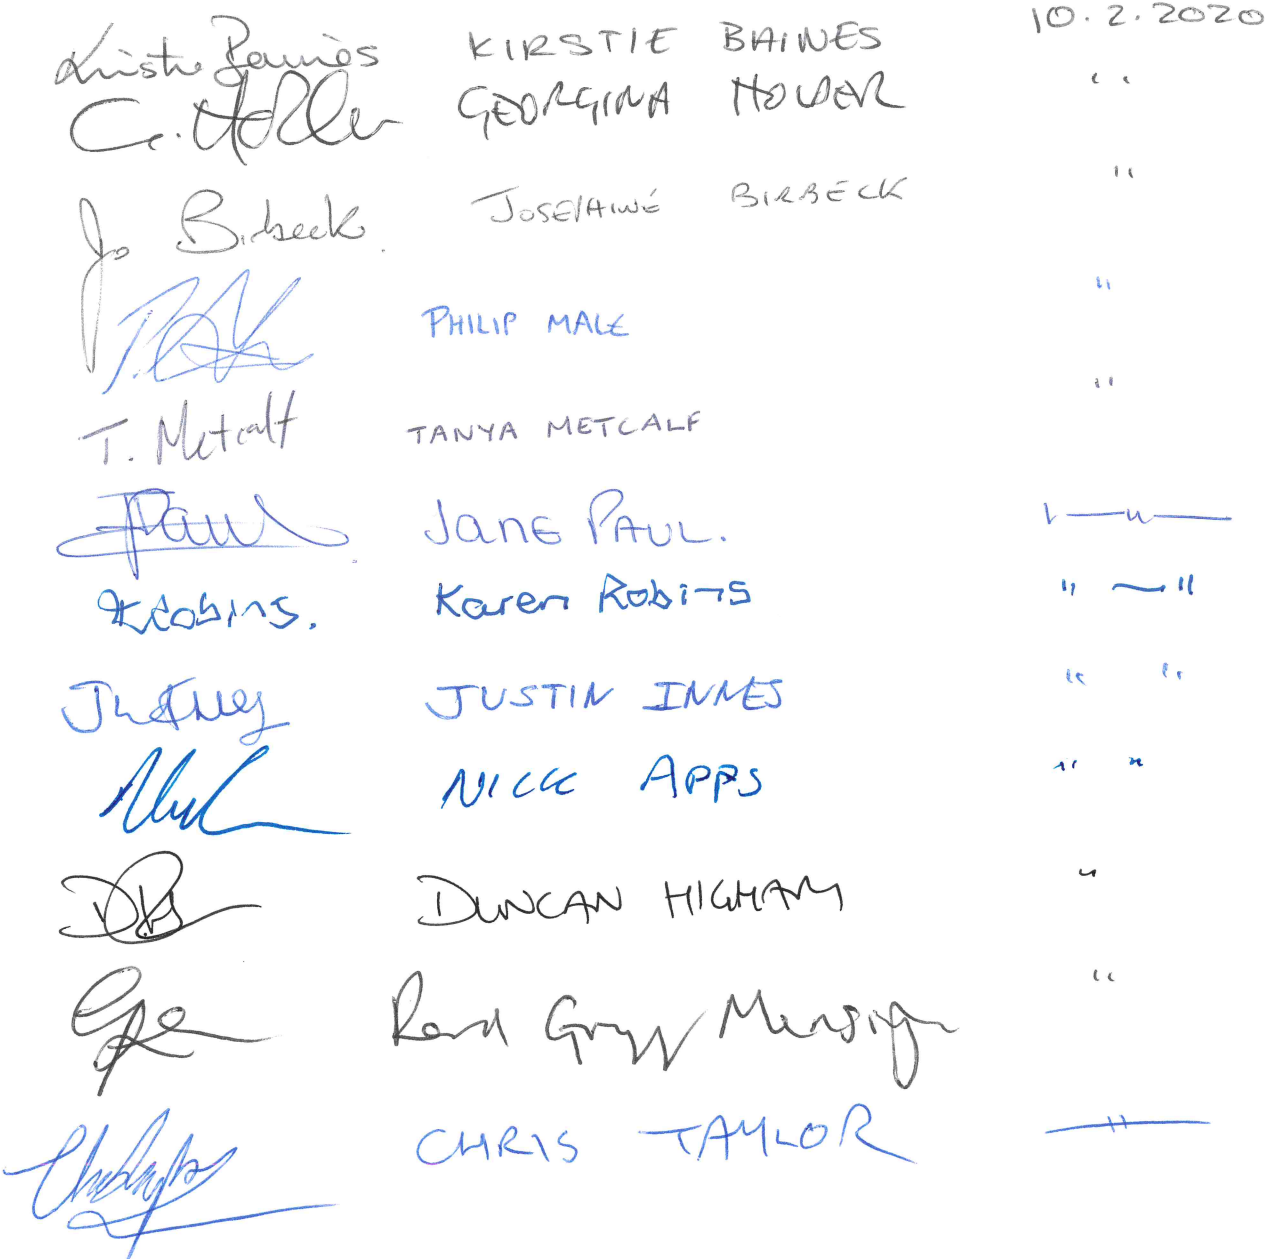 Kirstie Baines KIRSTIE BAINES 10.2.2020
G. Holder GEORGINA HOLDER " "
Jo Birbeck. JOSEPHINE BIRBECK "
PHILIP MALE "
T. Metcalf TANYA METCALF "
JPaul JANE PAUL. "
KRobins. Karen Robins " "
JUSTIN INNES " "
NICK APPS " "
DUNCAN HIGHAM "
"
CHRIS TAYLOR "